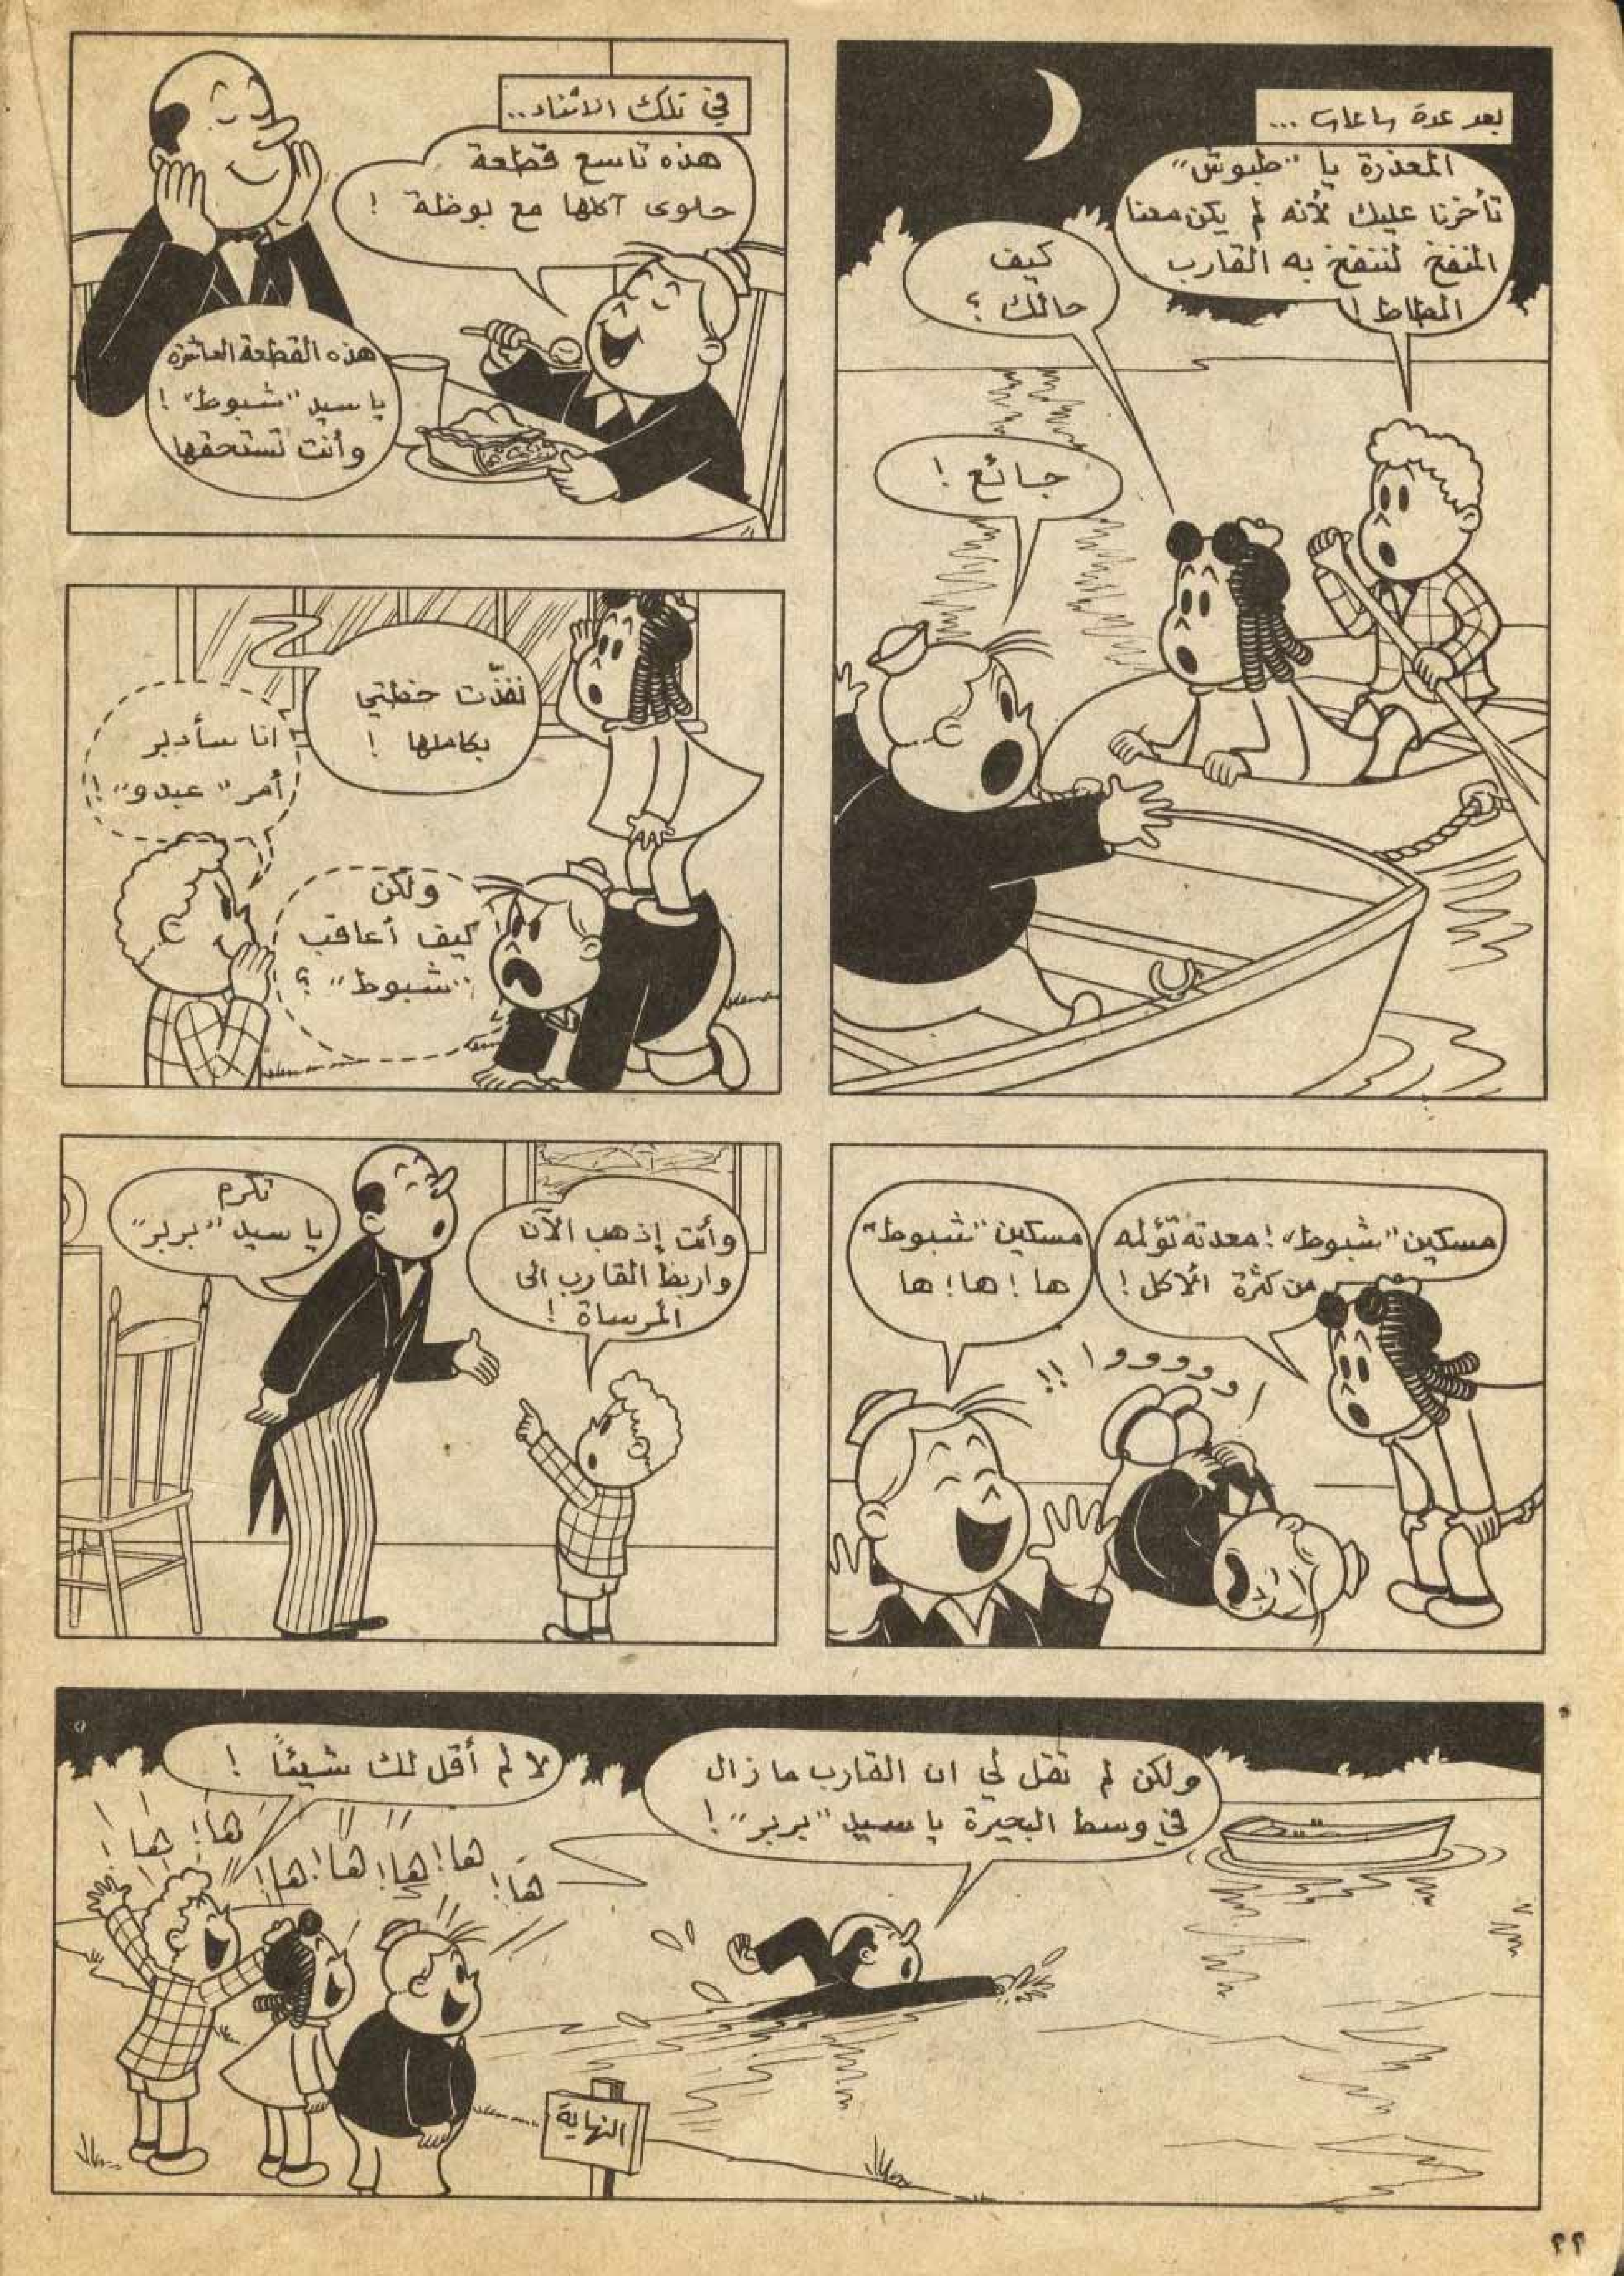 بعد عدة ساعات ...
المعذرة يا "طبوش"
تأخرنا عليك لأنه لم يكن معنا
المنفخ لننفخ به القارب
المطاط !
كيف
حالك ؟
جائع !
في تلك الاثناء..
هذه تاسع قطعة
حلوى آكلها مع بوظة !
هذه القطعة العاشرة
يا سيد "شبوط" !
وأنت تستحقها
نفذّت خطتي
بكاملها !
أنا سأدبر
أمر "عبدو" !
ولكن
كيف أعاقب
"شبوط" ؟
مسكين "شبوط" ! معدته تؤلمه
من كثرة الأكل !
مسكين "شبوط"
ها ! ها ! ها
اووووو !!
وأنت إذهب الآن
واربط القارب الى
المرساة !
تكرم
يا سيد "بربر"
ولكن لم تقل لي ان القارب ما زال
في وسط البحيرة يا سيد "بربر" !
لا لم أقل لك شيئاً !
ها ! ها !
ها ! ها ! ها ! ها ! ها !
النهاية
٢٢